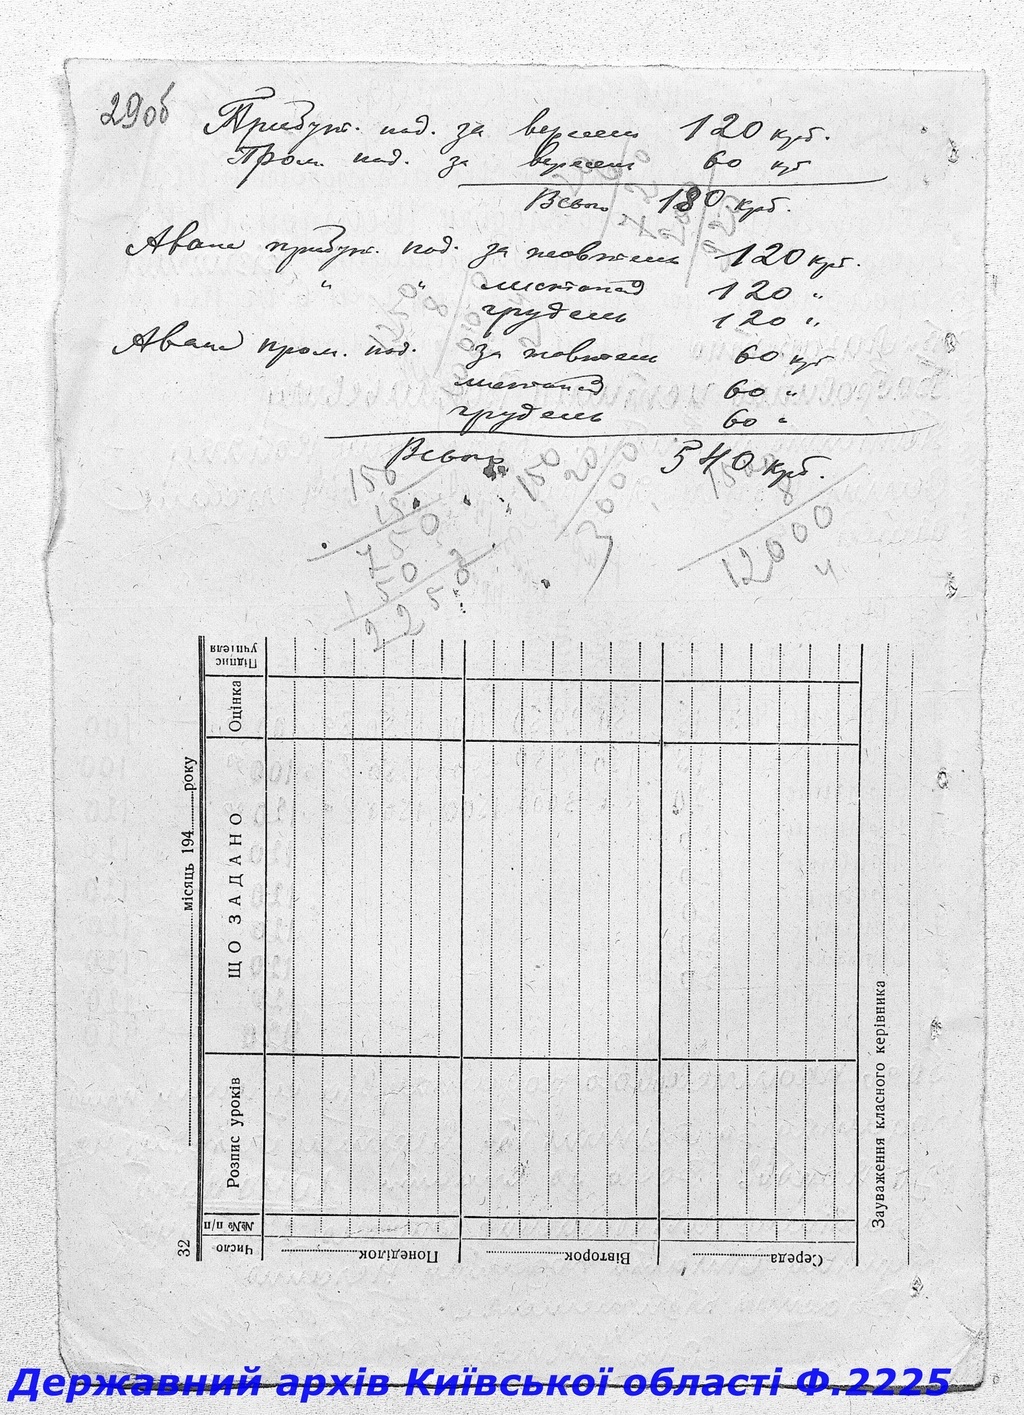 29об
Прибутк. под. за вересень 120 крб.
Пром. под. за вересень 60 крб
Всього 180 крб.
Аванс прибутк. под. за жовтень 120 крб.
" " листопад 120 "
грудень 120 "
Аванс пром. под. за жовтень 60 крб
листопад 60 "
грудень 60 "
Всього 540 крб.
150
15
750
150
2250
150
20
3000
1500
8
12000
32
місяць 194 року
Число
№№ п/п
Розпис уроків
ЩО ЗАДАНО
Оцінка
Підпис учителя
Понеділок
Вівторок
Середа
Зауваження класного керівника
Державний архів Київської області Ф.2225